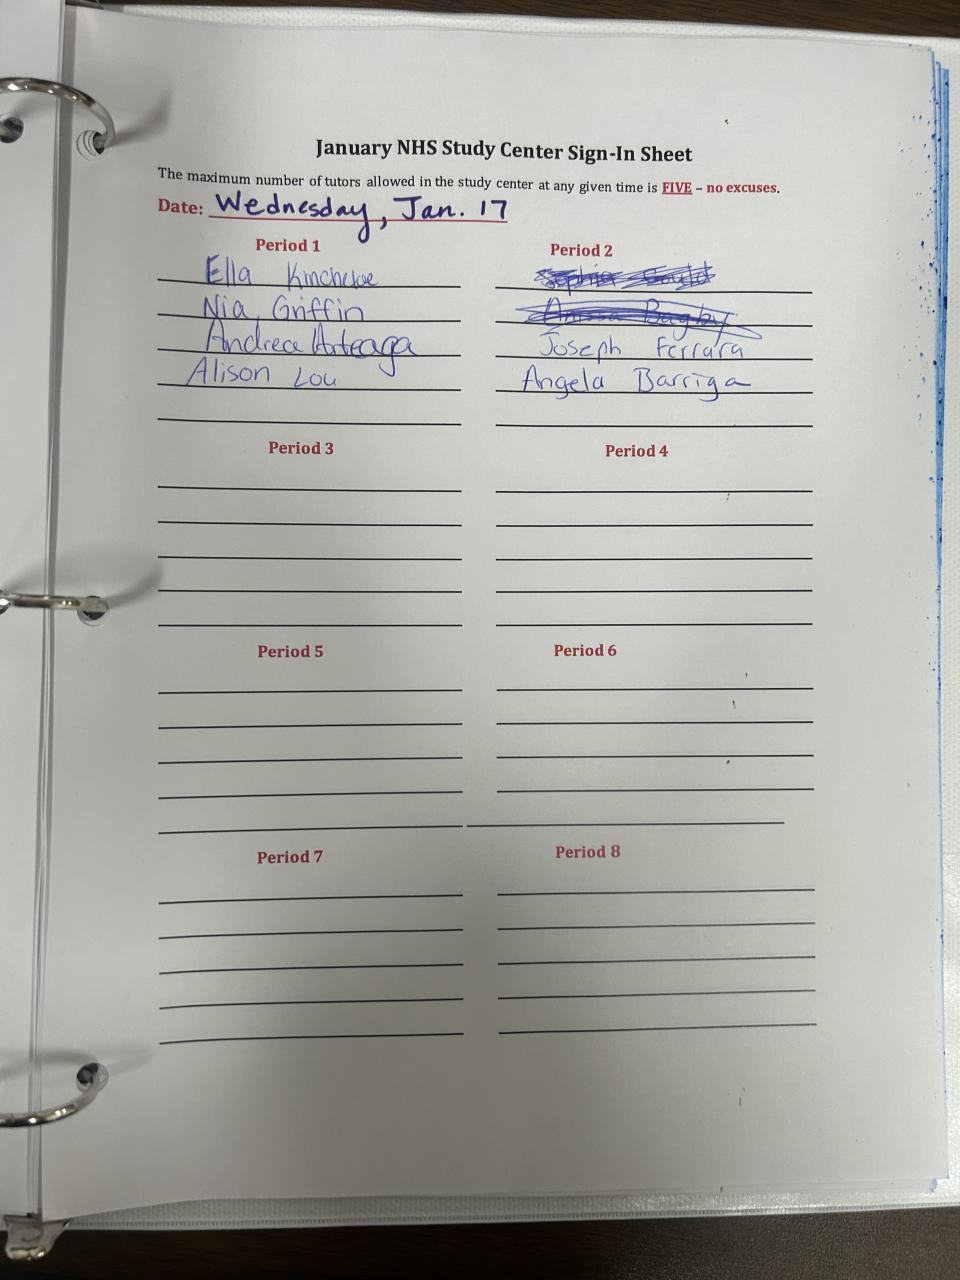 January NHS Study Center Sign-In Sheet
The maximum number of tutors allowed in the study center at any given time is FIVE – no excuses.
Date: Wednesday, Jan. 17
Period 1
Ella Kincheloe
Nia Griffin
Andrea Arteaga
Alison Lou
Period 2
Sophia Gould
Anissa Bagby
Joseph Ferrara
Angela Barriga
Period 3
Period 4
Period 5
Period 6
Period 7
Period 8